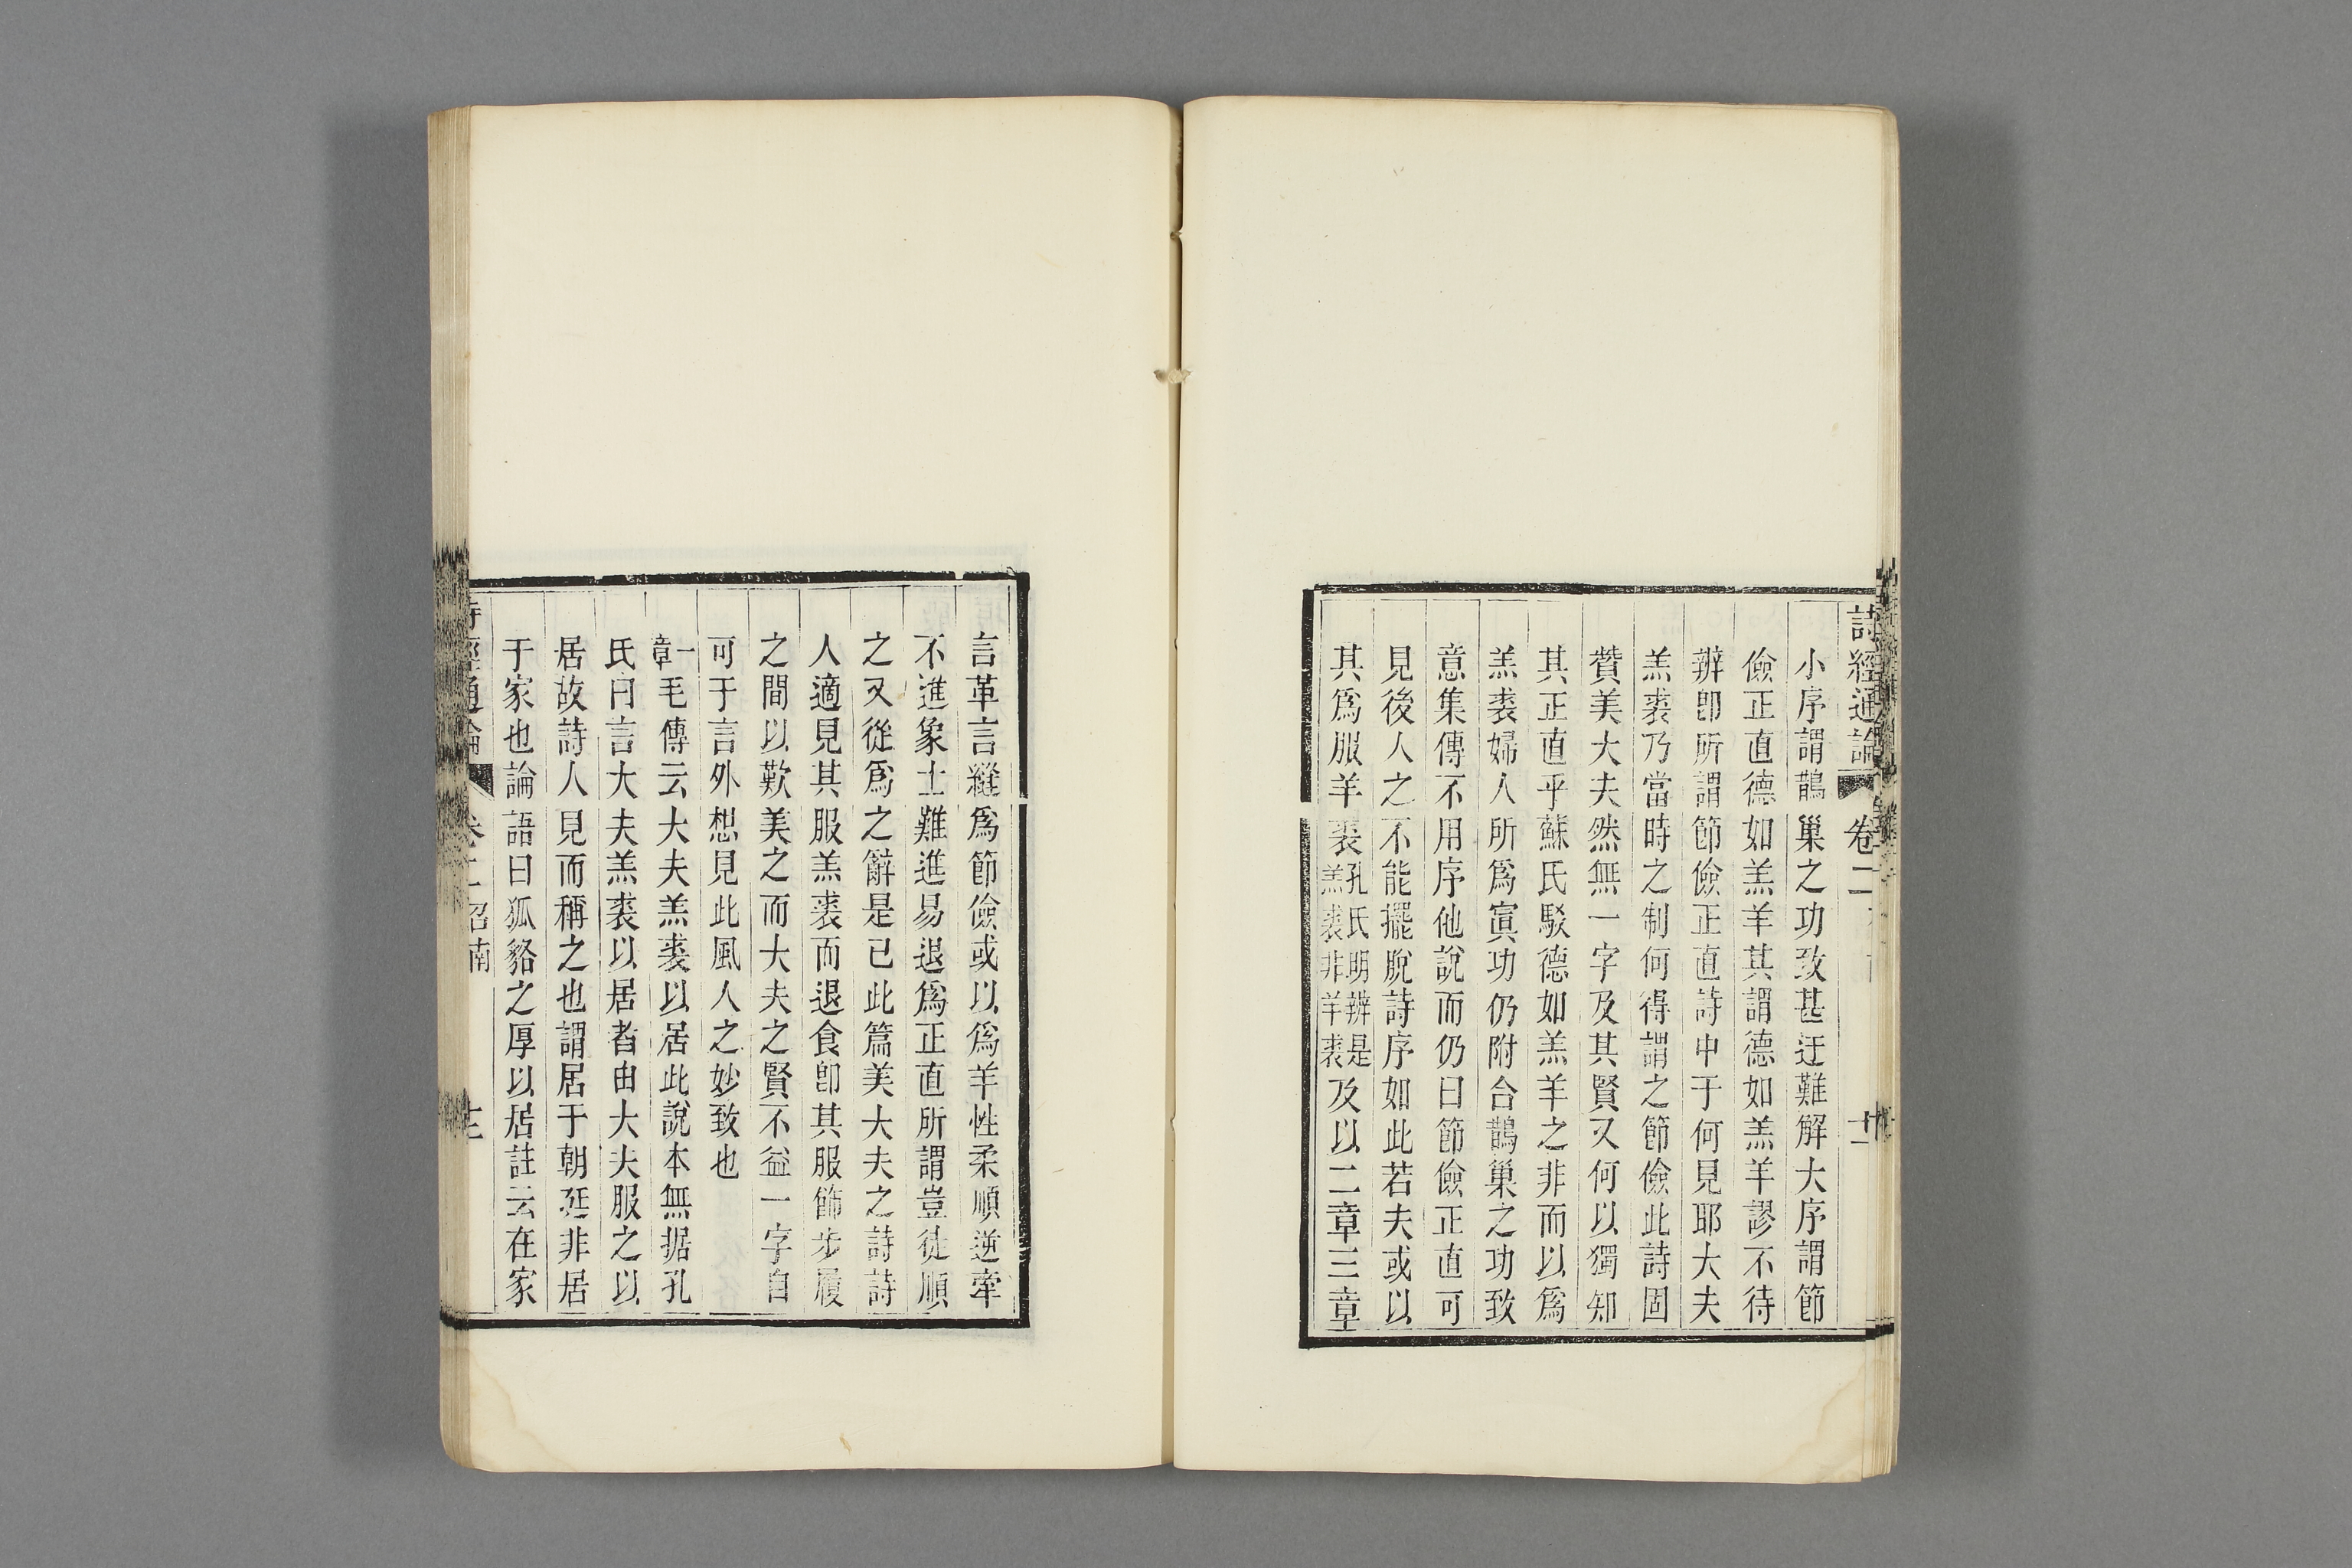 詩經通論 卷二 十二
小序謂鵲巢之功致甚迂難解大序謂節
儉正直德如羔羊其謂德如羔羊謬不待
辨卽所謂節儉正直詩中于何見耶大夫
羔裘乃當時之制何得謂之節儉此詩固
贊美大夫然無一字及其賢又何以獨知
其正直乎蘇氏駁德如羔羊之非而以爲
羔裘婦人所爲寘功仍附合鵲巢之功致
意集傳不用序他說而仍曰節儉正直可
見後人之不能擺脫詩序如此若夫或以
其爲服羊裘孔氏明辨是羔裘非羊裘及以二章三章
言革言縫爲節儉或以爲羊性柔順逆牽
不進象士難進易退爲正直所謂豈徒順
之又從爲之辭是已此篇美大夫之詩詩
人適見其服羔裘而退食卽其服飾步履
之間以歎美之而大夫之賢不益一字自
可于言外想見此風人之妙致也
一章毛傳云大夫羔裘以居此說本無据孔
氏曰言大夫羔裘以居者由大夫服之以
居故詩人見而稱之也謂居于朝廷非居
于家也論語曰狐貉之厚以居註云在家
經通論 卷二 召南 十三